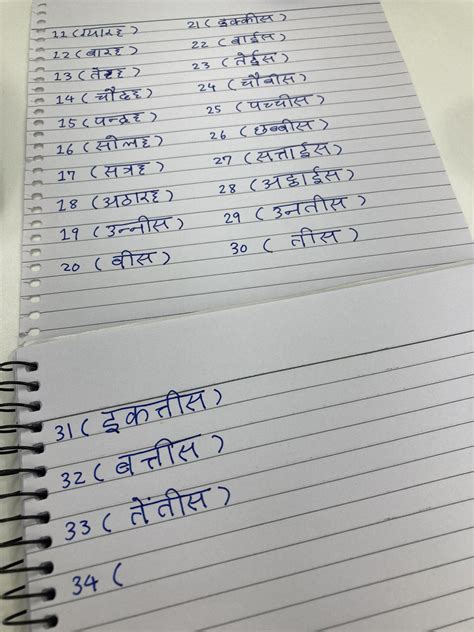 11 (ग्यारह)
12 (बारह)
13 (तेरह)
14 (चौदह)
15 (पन्द्रह)
16 (सोलह)
17 (सत्रह)
18 (अठारह)
19 (उन्नीस)
20 (बीस)
21 (इक्कीस)
22 (बाईस)
23 (तेईस)
24 (चौबीस)
25 (पच्चीस)
26 (छब्बीस)
27 (सत्ताईस)
28 (अट्ठाईस)
29 (उनतीस)
30 (तीस)
31 (इकत्तीस)
32 (बत्तीस)
33 (तेंतीस)
34 (